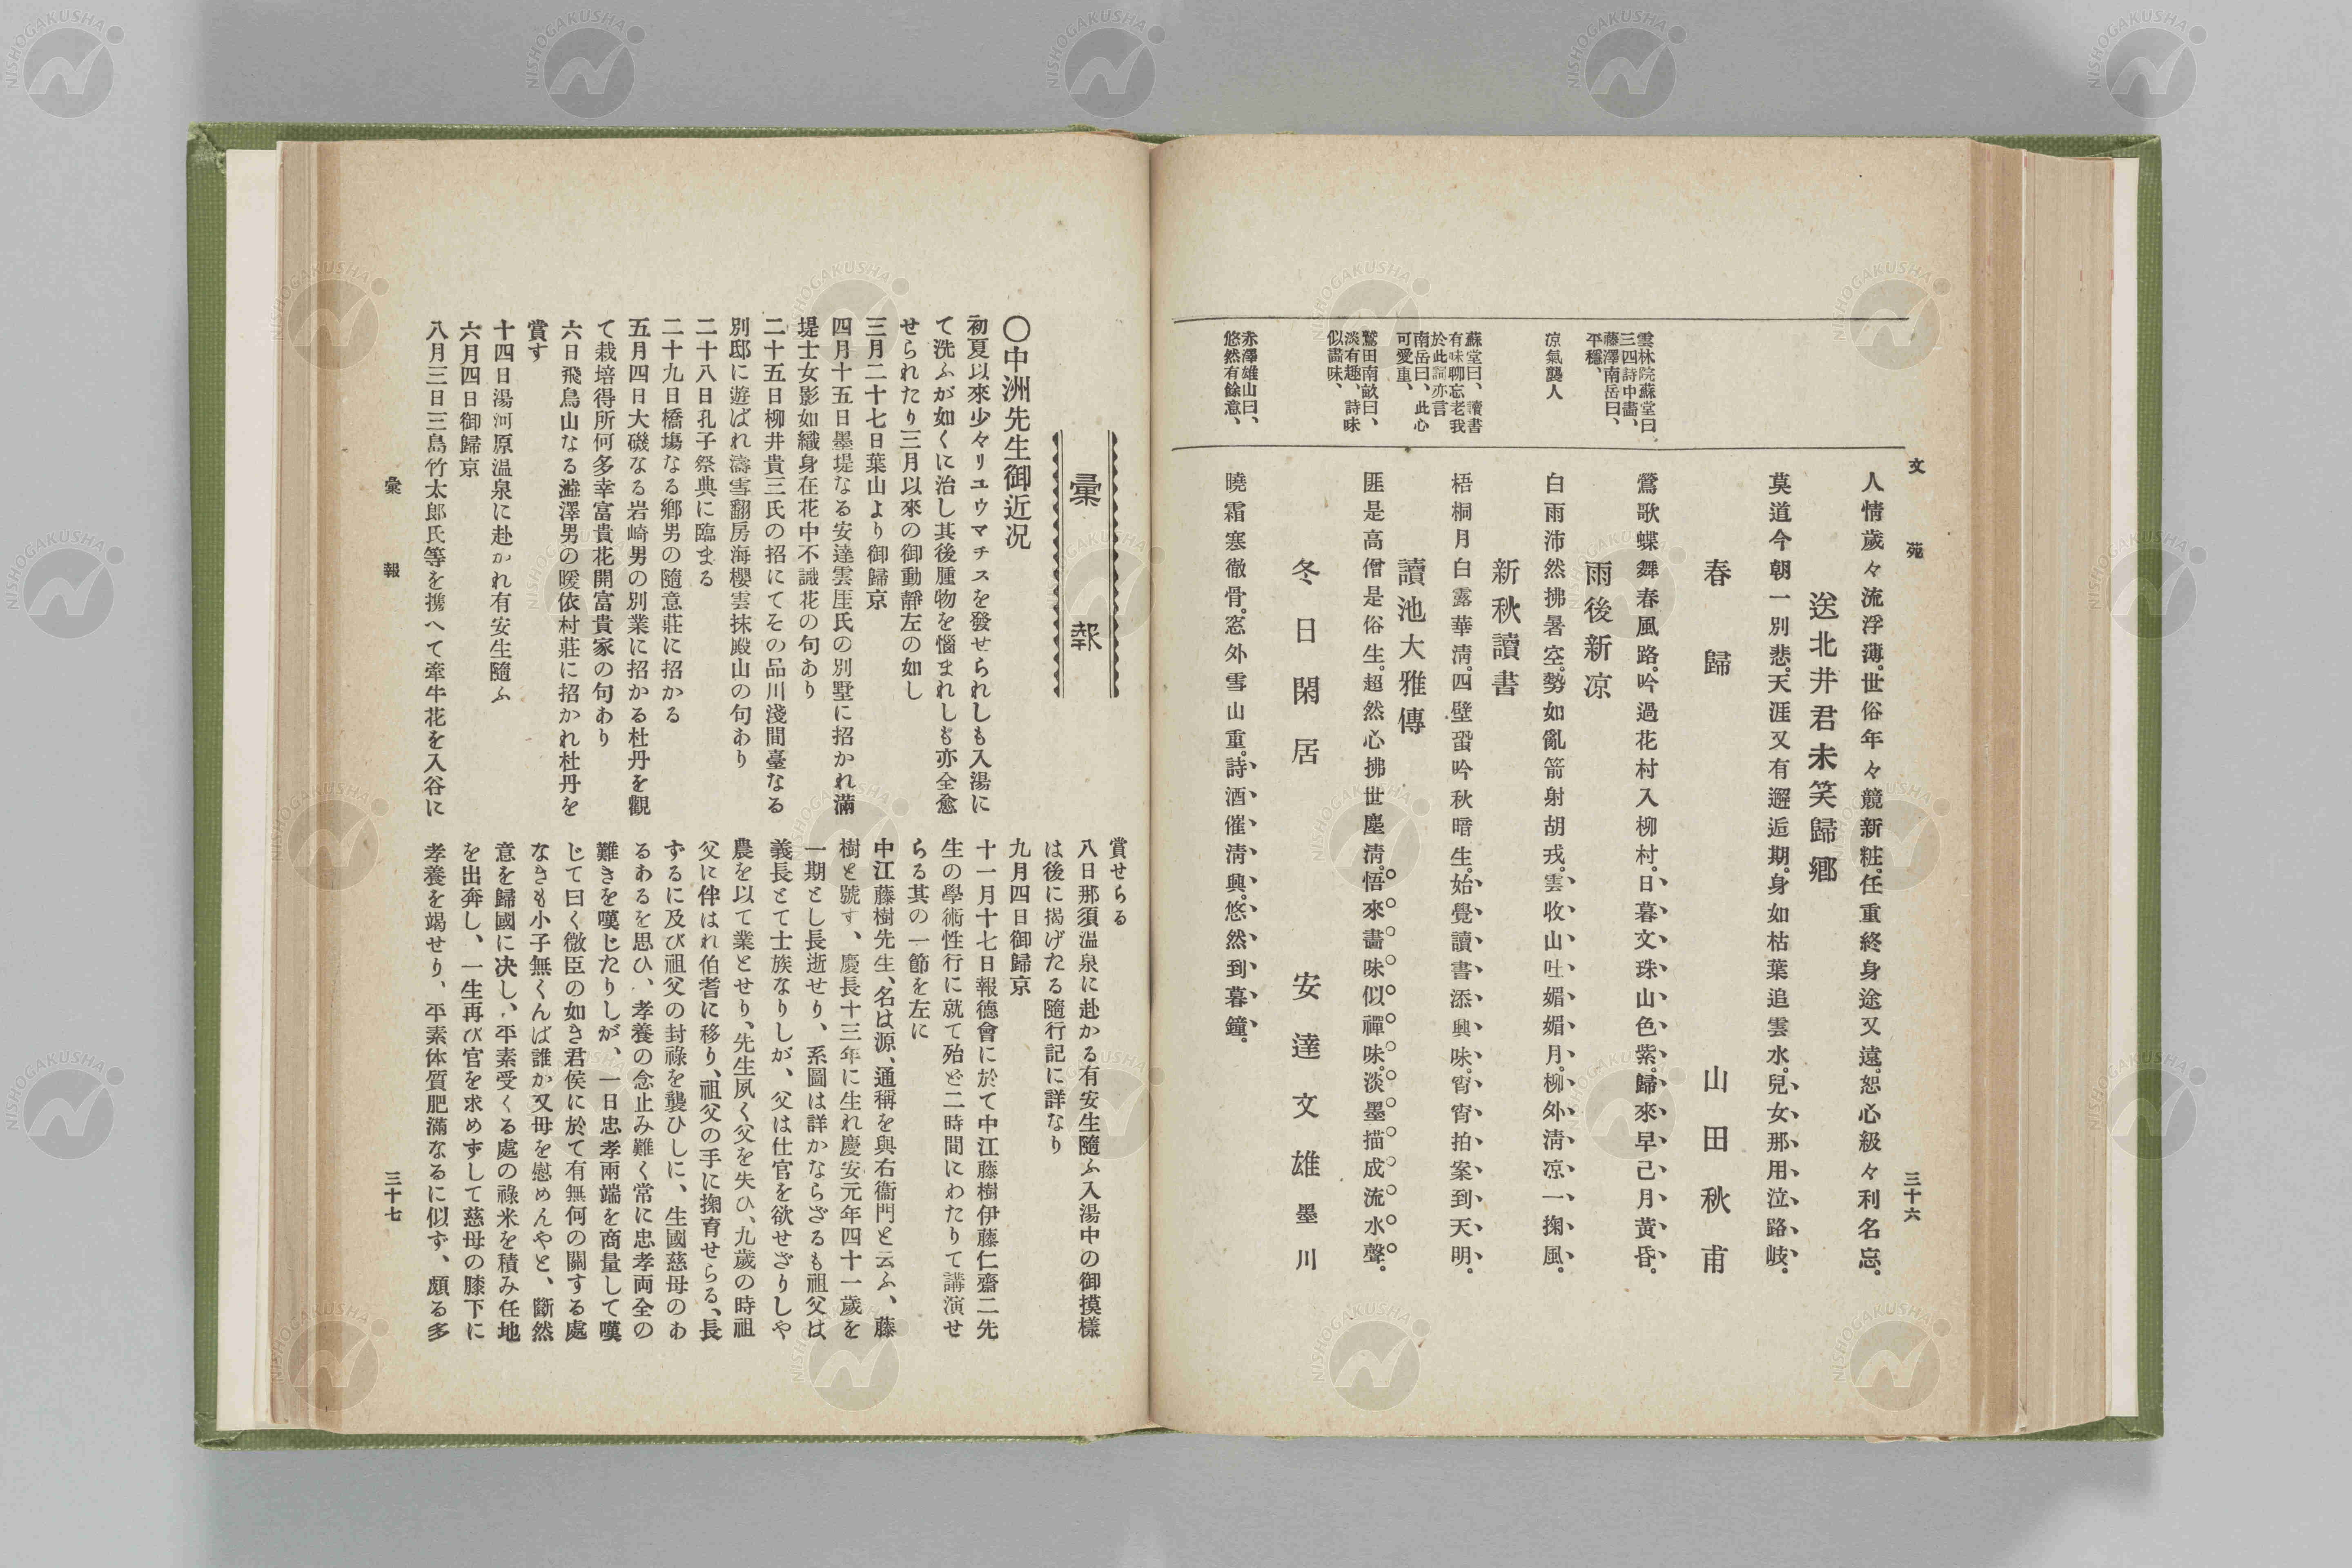 文苑
三十六
人情歲々流浮薄。世俗年々競新粧。任重終身途又遠。恕心級々利名忘。
送北井君未笑歸鄕
莫道今朝一別悲。天涯又有邂逅期。身如枯葉追雲水。兒女那用泣路岐。
春歸
山田秋甫
鶯歌蝶舞春風路。吟過花村入柳村。日暮文珠山色紫。歸來早已月黃昏。
雲林院蘇堂曰
三四詩中畵、
藤澤南岳曰、
平穩、
雨後新凉
白雨沛然拂暑空。勢如亂箭射胡戎。雲收山吐媚媚月。柳外淸凉一掬風。
凉氣襲人
新秋讀書
梧桐月白露華淸。四壁蛩吟秋暗生。始覺讀書添興味。宵宵拍案到天明。
蘇堂曰、讀書
有味聊忘老我
於此詞亦言
南岳曰、此心
可愛重、
讀池大雅傳
匪是高僧是俗生。超然心拂世塵淸。悟來畵味似禪味。淡墨描成流水聲。
鷲田南畝曰、
淡有趣、詩味
似畵味、
冬日閑居
安達文雄墨川
曉霜寒徹骨。窓外雪山重。詩酒催淸興。悠然到暮鐘。
赤澤雄山曰、
悠然有餘意、
彙報
〇中洲先生御近况
初夏以來少々リユウマチスを發せられしも入湯に
て洗ふが如くに治し其後腫物を惱まれしも亦全愈
せられたり三月以來の御動靜左の如し
三月二十七日葉山より御歸京
四月十五日墨堤なる安達雲厓氏の別墅に招かれ滿
堤士女影如織身在花中不識花の句あり
二十五日柳井貴三氏の招にてその品川淺間臺なる
別邸に遊ばれ濤雪翻房海櫻雲抹殿山の句あり
二十八日孔子祭典に臨まる
二十九日橋塲なる鄕男の隨意莊に招かる
五月四日大磯なる岩崎男の別業に招かる杜丹を觀
て栽培得所何多幸富貴花開富貴家の句あり
六日飛鳥山なる澁澤男の曖依村莊に招かれ杜丹を
賞す
十四日湯河原溫泉に赴かれ有安生隨ふ
六月四日御歸京
八月三日三島竹太郎氏等を携へて牽牛花を入谷に
賞せらる
八日那須溫泉に赴かる有安生隨ふ入湯中の御摸樣
は後に揭げたる隨行記に詳なり
九月四日御歸京
十一月十七日報德會に於て中江藤樹伊藤仁齋二先
生の學術性行に就て殆ど二時間にわたりて講演せ
らる其の一節を左に
中江藤樹先生、名は源、通稱を與右衞門と云ふ、藤
樹と號す、慶長十三年に生れ慶安元年四十一歲を
一期とし長逝せり、系圖は詳かならざるも祖父は
義長とて士族なりしが、父は仕官を欲せざりしや
農を以て業とせり、先生夙く父を失ひ、九歲の時祖
父に伴はれ伯耆に移り、祖父の手に掬育せらる、長
ずるに及び祖父の封祿を襲ひしに、生國慈母のあ
るあるを思ひ、孝養の念止み難く常に忠孝両全の
難きを嘆じたりしが、一日忠孝兩端を商量して嘆
じて曰く微臣の如き君侯に於て有無何の關する處
なきも小子無くんば誰か又母を慰めんやと、斷然
意を歸國に决し、平素受くる處の祿米を積み任地
を出奔し、一生再び官を求めずして慈母の膝下に
孝養を竭せり、平素体質肥滿なるに似ず、頗る多
彙報
三十七